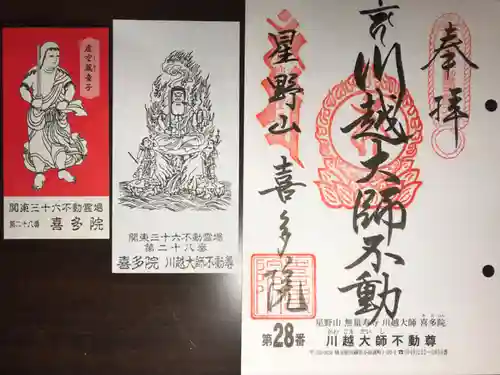 虚空蔵童子
関東三十六不動霊場
第二十八番 喜多院
関東三十六不動霊場
第二十八番
喜多院 川越大師不動尊
奉拝
川越大師不動
星野山 喜多院
第28番
星野山 無量寿寺 川越大師 喜多院
かわ ごえ だい し
川越大師不動尊